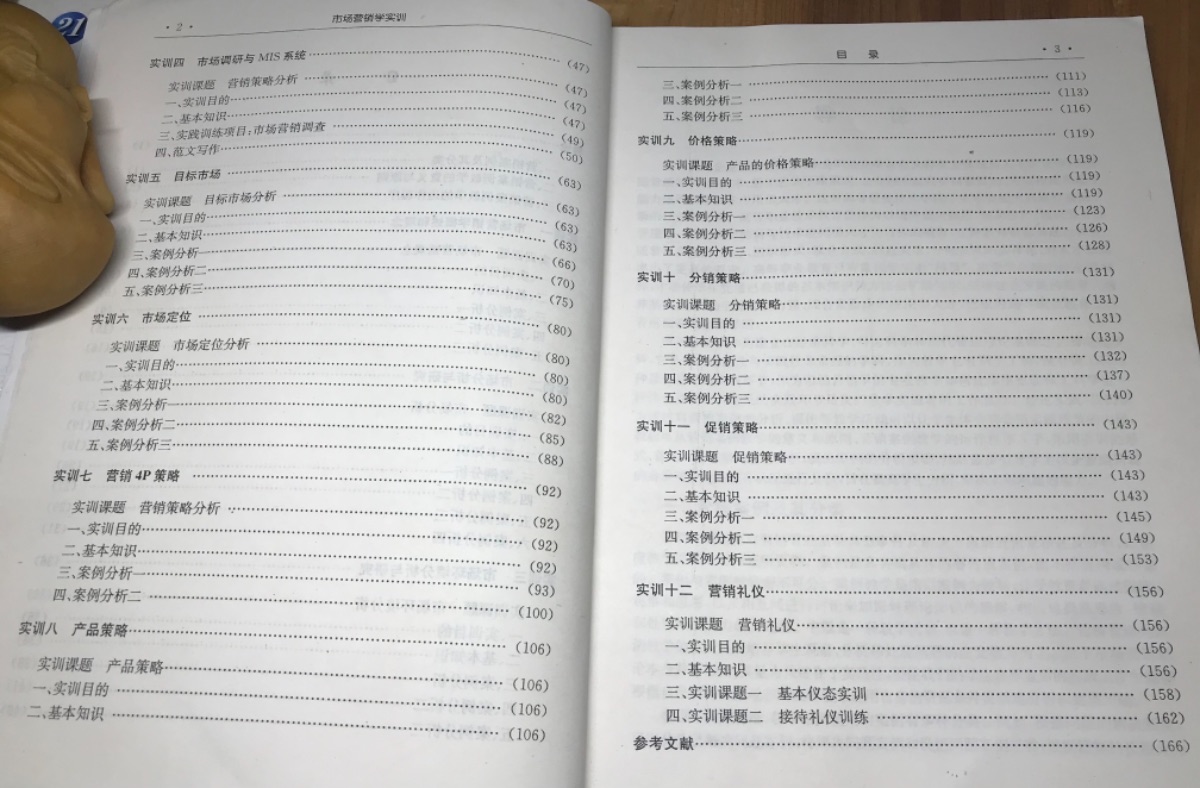 21
· 2 · 市场营销学实训
实训四 市场调研与 MIS 系统 (47)
实训课题 营销策略分析 (47)
一、实训目的 (47)
二、基本知识 (47)
三、实践训练项目:市场营销调查 (49)
四、范文写作 (50)
实训五 目标市场 (63)
实训课题 目标市场分析 (63)
一、实训目的 (63)
二、基本知识 (63)
三、案例分析一 (66)
四、案例分析二 (70)
五、案例分析三 (75)
实训六 市场定位 (80)
实训课题 市场定位分析 (80)
一、实训目的 (80)
二、基本知识 (80)
三、案例分析一 (82)
四、案例分析二 (85)
五、案例分析三 (88)
实训七 营销 4P 策略 (92)
实训课题 营销策略分析 (92)
一、实训目的 (92)
二、基本知识 (92)
三、案例分析一 (93)
四、案例分析二 (100)
实训八 产品策略 (106)
实训课题 产品策略 (106)
一、实训目的 (106)
二、基本知识 (106)
目 录 · 3 ·
三、案例分析一 (111)
四、案例分析二 (113)
五、案例分析三 (116)
实训九 价格策略 (119)
实训课题 产品的价格策略 (119)
一、实训目的 (119)
二、基本知识 (119)
三、案例分析一 (123)
四、案例分析二 (126)
五、案例分析三 (128)
实训十 分销策略 (131)
实训课题 分销策略 (131)
一、实训目的 (131)
二、基本知识 (131)
三、案例分析一 (132)
四、案例分析二 (137)
五、案例分析三 (140)
实训十一 促销策略 (143)
实训课题 促销策略 (143)
一、实训目的 (143)
二、基本知识 (143)
三、案例分析一 (145)
四、案例分析二 (149)
五、案例分析三 (153)
实训十二 营销礼仪 (156)
实训课题 营销礼仪 (156)
一、实训目的 (156)
二、基本知识 (156)
三、实训课题一 基本仪态实训 (158)
四、实训课题二 接待礼仪训练 (162)
参考文献 (166)